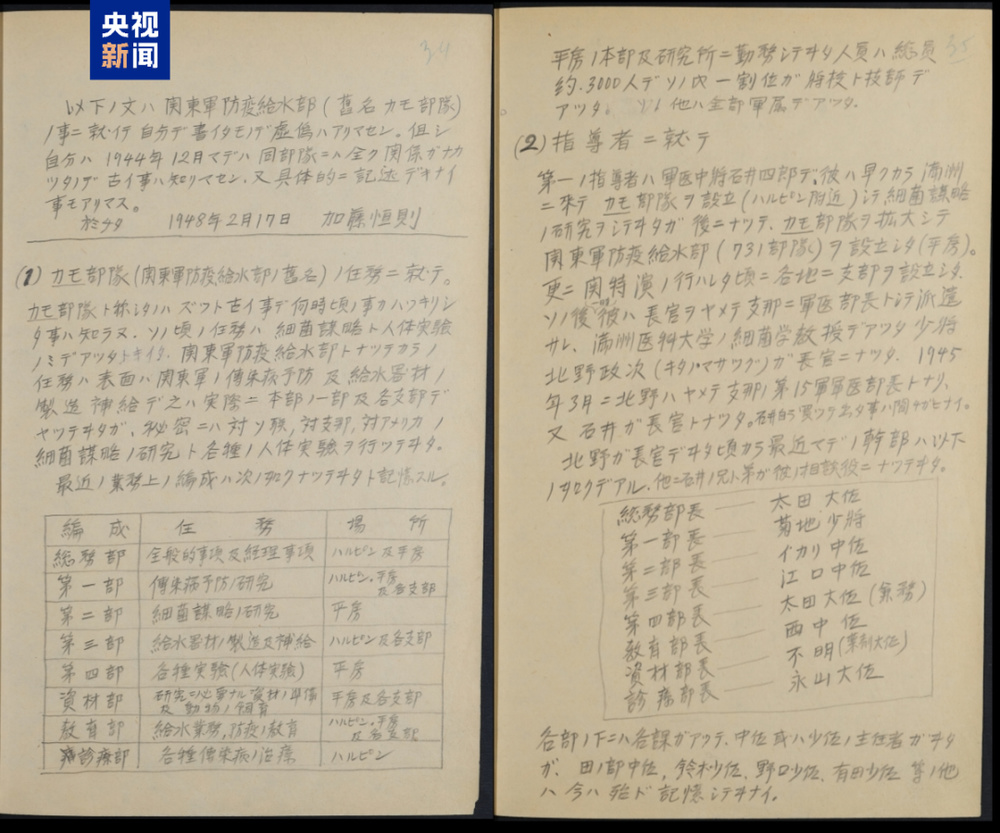 央视
新闻
34
以下ノ文ハ関東軍防疫給水部(舊名カモ部隊)
ノ事ニ就イテ自分デ書イタモノデ虚偽ハアリマセン。但シ
自分ハ1944年12月マデハ同部隊ニハ全ク関係ガナカ
ツタノデ古イ事ハ知リマセン、又具体的ニ記述デキナイ
事モアリマス。
於チタ 1948年2月17日 加藤恒則
(1) カモ部隊(関東軍防疫給水部ノ舊名)ノ任務ニ就テ。
カモ部隊ト称シタハズツト古イ事デ何時頃ノ事カハツキリシ
タ事ハ知ラヌ、ソノ頃ノ任務ハ細菌謀略ト人体実験
ノミデアツタトキイタ、関東軍防疫給水部トナツテカラノ
任務ハ表面ハ関東軍ノ傳染病予防及給水器材ノ
製造補給デ之ハ実際ニ本部ノ一部及各支部デ
ヤツテヰタガ、秘密ニハ対ソ聯、対支那、対アメリカノ
細菌謀略ノ研究ト各種ノ人体実験ヲ行ツテヰタ。
最近ノ業務上ノ編成ハ次ノ如クナツテヰタト記憶スル。
編成 任務 場所
総務部 全般的事項及経理事項 ハルピン及平房
第一部 傳染病予防ノ研究 ハルピン、平房及各支部
第二部 細菌謀略ノ研究 平房
第三部 給水器材ノ製造及補給 ハルピン及各支部
第四部 各種実験(人体実験) 平房
資材部 研究ニ必要ナル資材ノ準備及動物ノ飼育 平房及各支部
教育部 給水業務、防疫ノ教育 ハルピン、平房及各支部
診療部 各種傳染病ノ治療 ハルピン
35
平房ノ本部及研究所ニ勤務シテヰタ人員ハ総員
約3000人デソノ内一割位ガ将校ト技師デ
アツタ。 他ハ全部軍属デアツタ。
(2) 指導者ニ就テ
第一ノ指導者ハ軍医中將石井四郎デ、彼ハ早クカラ満洲
ニ來テカモ部隊ヲ設立(ハルピン附近)シテ細菌謀略
ノ研究ヲシテヰタガ後ニナツテ、カモ部隊ヲ拡大シテ
関東軍防疫給水部(731部隊)ヲ設立シタ(平房)。
更ニ関特演ノ行ハレタ頃ニ各地ニ支部ヲ設立シタ、
ソノ後彼ハ長官ヲヤメテ支那ニ軍医部長トシテ派遣
サレ、満洲医科大学ノ細菌学教授デアツタ少將
北野政次(キタノマサツグ)ガ長官ニナツタ、1945
年3月ニ北野ハヤメテ支那ノ第15軍軍医部長トナリ、
又石井ガ長官トナツタ。
北野ガ長官デヰタ頃カラ最近マデノ幹部ハ以下
ノ如クデアル、他ニ石井ノ兄ト弟ガ彼ノ相談役ニナツテヰタ。
総務部長 太田大佐
第一部長 菊地少將
第二部長 イカリ中佐
第三部長 江口中佐
第四部長 太田大佐(兼務)
教育部長 西中佐
資材部長 不明(薬剤大佐)
診療部長 永山大佐
各部ノ下ニハ各課ガアツテ、中佐或ハ少佐ノ主任者ガヰタ
ガ、田ノ部中佐、鈴木少佐、野口少佐、有田少佐等ノ他
ハ今ハ殆ド記憶シテヰナイ。